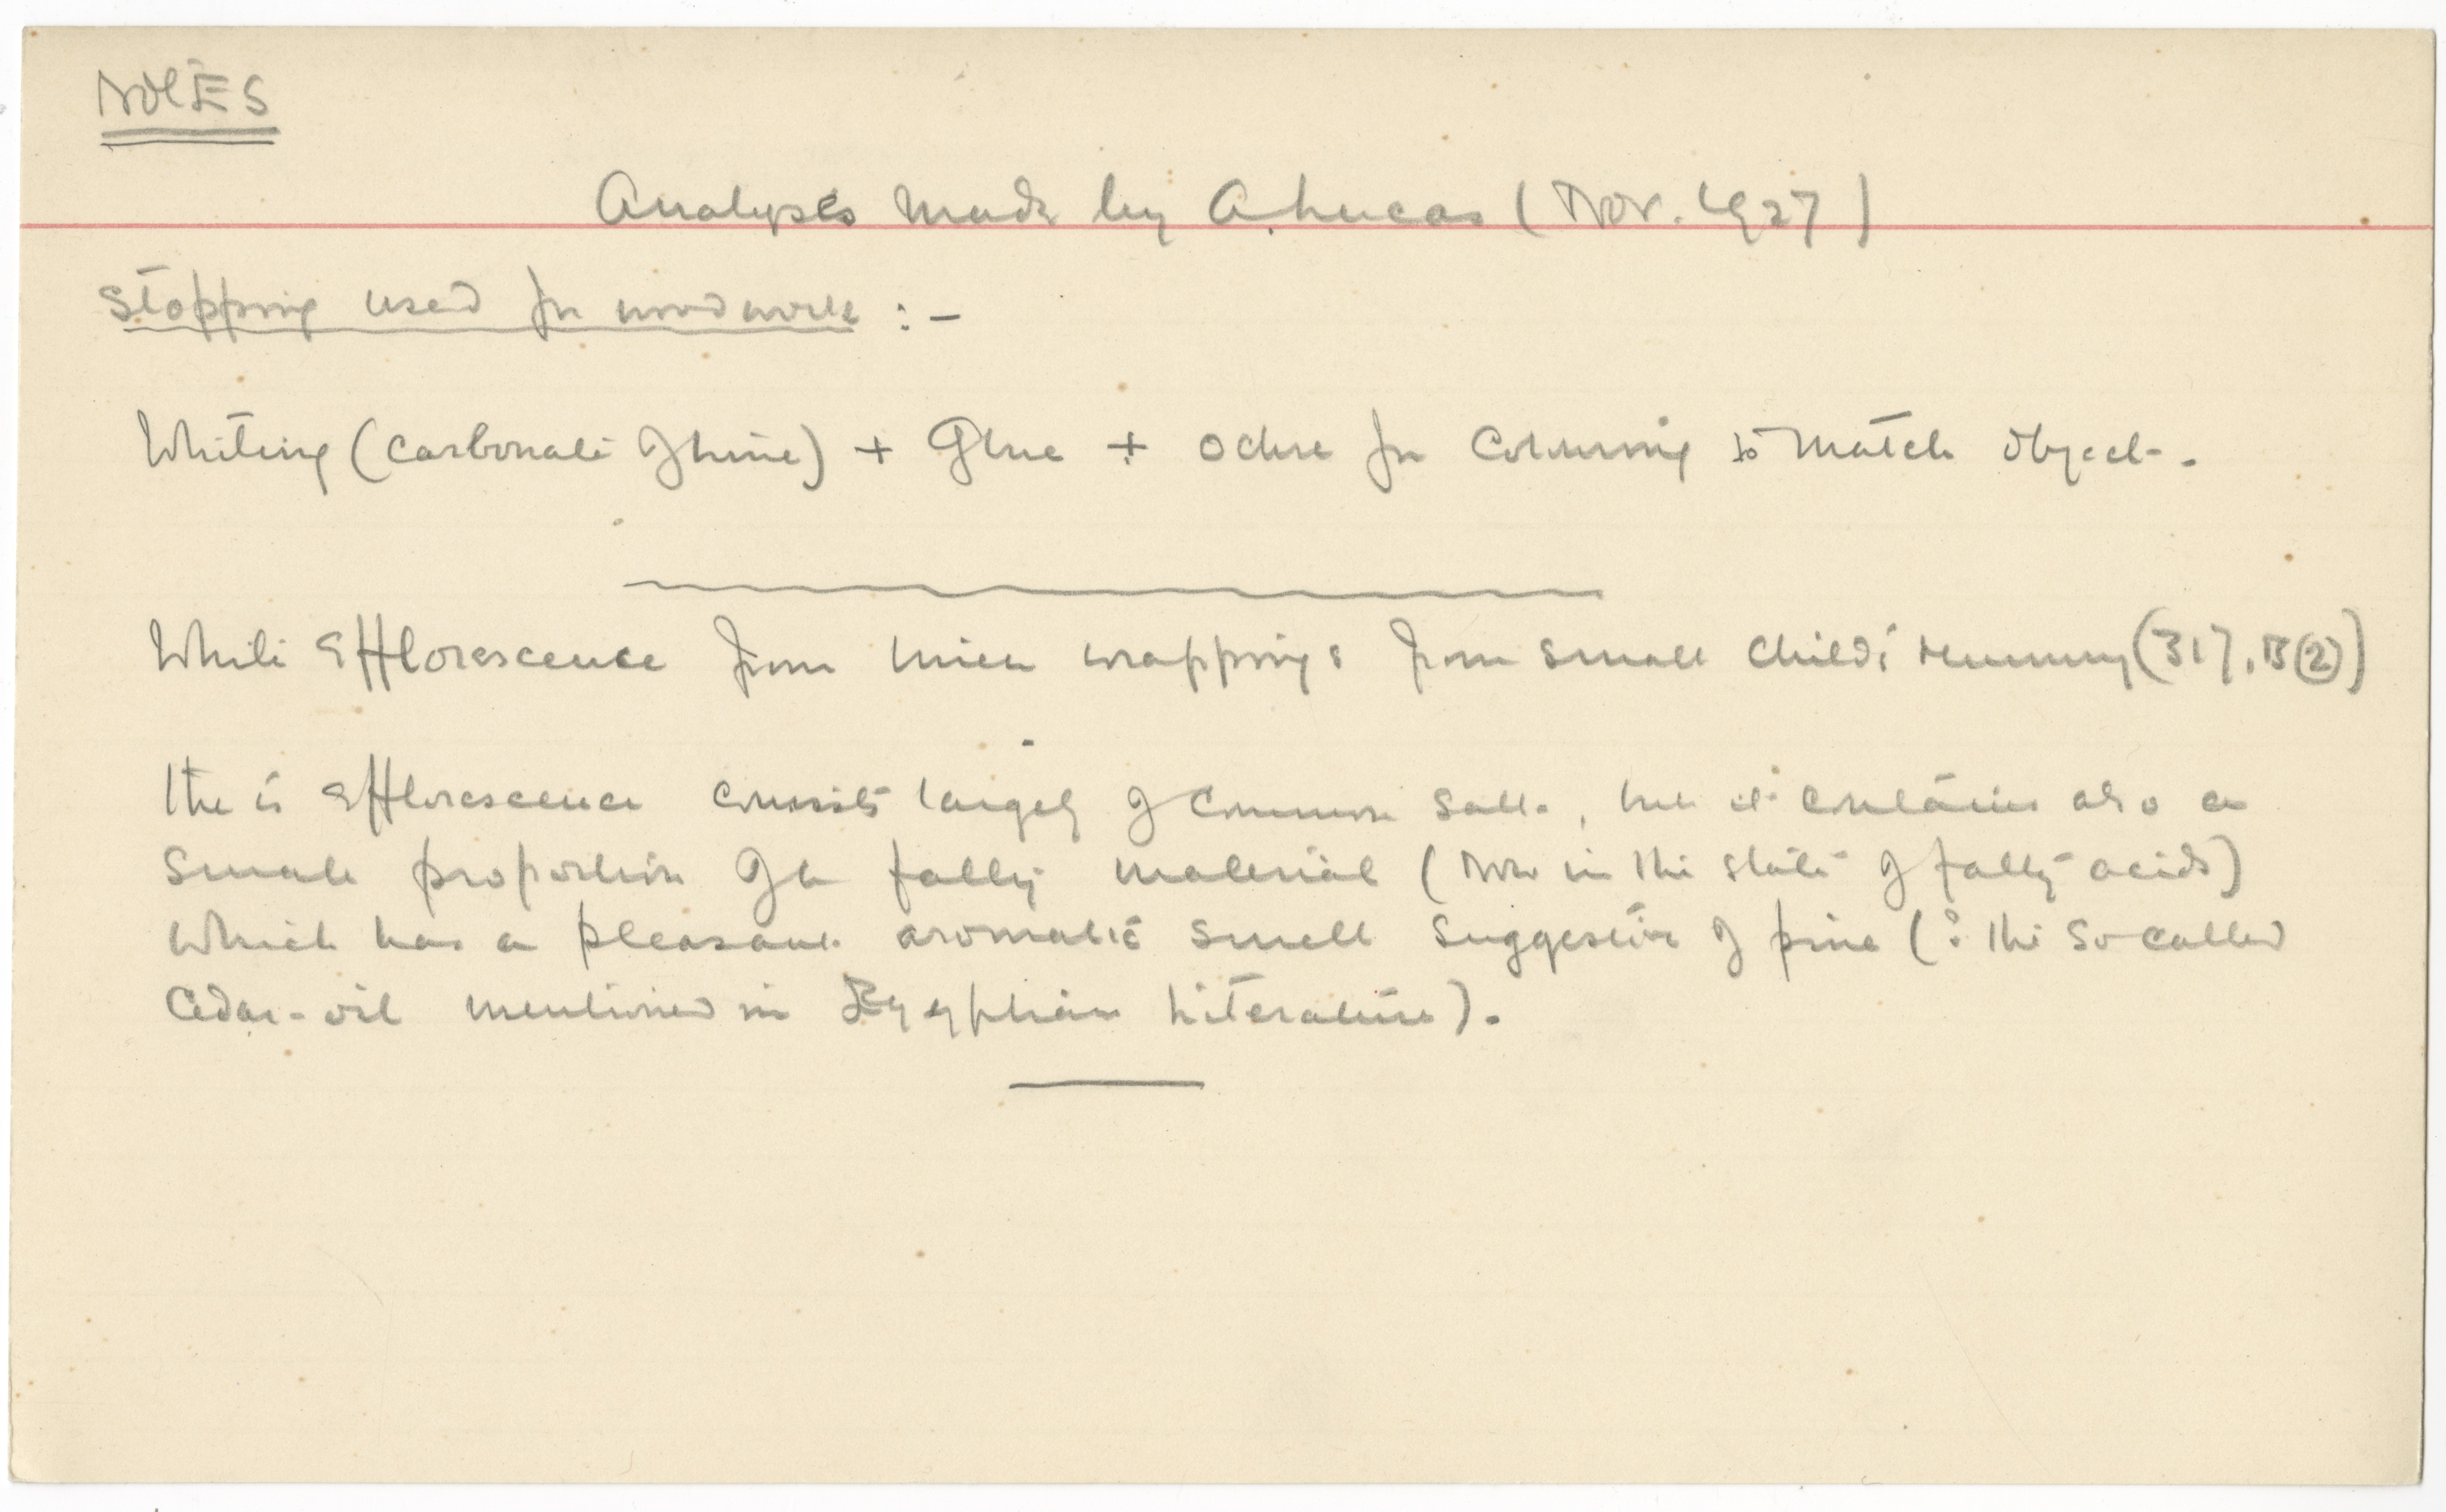 NOTES
Analyses made by A. Lucas (Nov. 1927)
Stopping used for woodwork :-
Whiting (carbonate of lime) + Glue + ochre for colouring to match object.
White Efflorescence from linen wrappings from small child's mummy (317.B(2))
The is Efflorescence consists largely of common salt, but it contains also a
small proportion of a fatty material (now in the state of fatty acids)
which has a pleasant aromatic smell suggestive of pine (? the so called
Cedar-oil mentioned in Egyptian Literature).